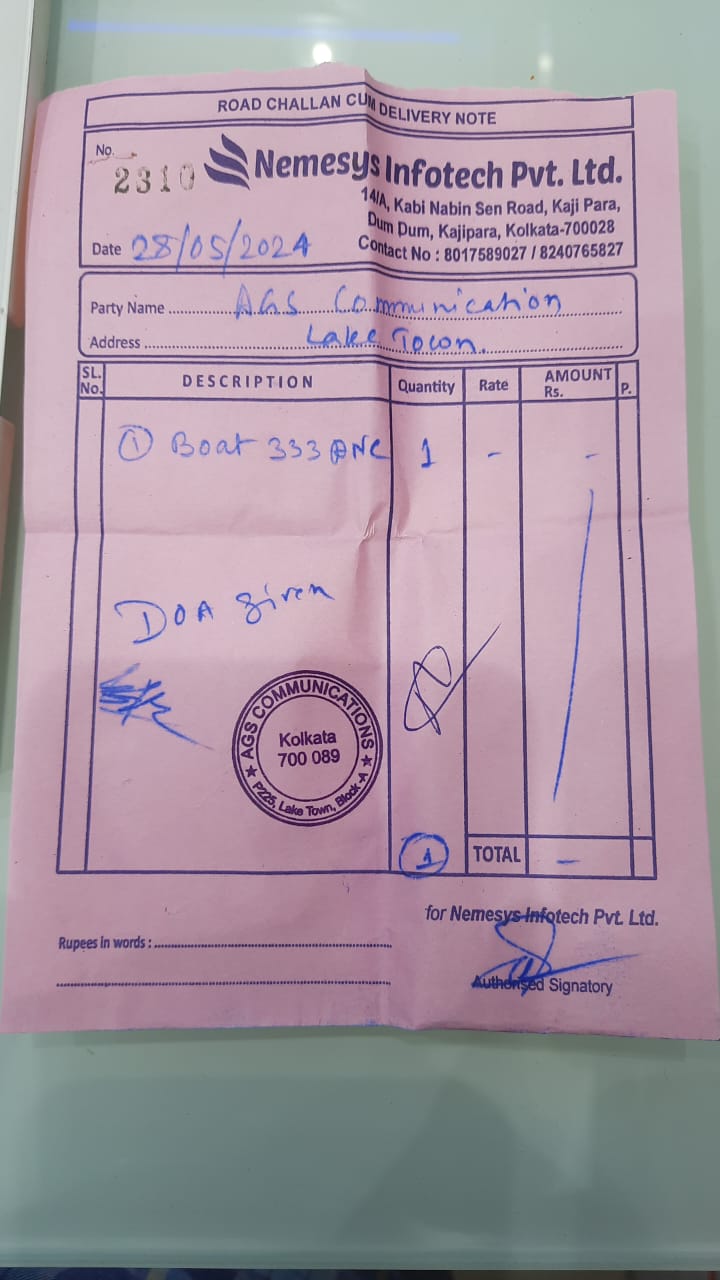 ROAD CHALLAN CUM DELIVERY NOTE
No. 2310
Nemesys Infotech Pvt. Ltd.
14/A, Kabi Nabin Sen Road, Kaji Para,
Dum Dum, Kajipara, Kolkata-700028
Contact No : 8017589027 / 8240765827
Date 28/05/2024
Party Name AGS Communication
Address Lake Town.
SL. No. DESCRIPTION Quantity Rate AMOUNT Rs. P.
① Boat 333 ANC 1 - -
DOA given
AGS COMMUNICATIONS
Kolkata
700 089
★ P225, Lake Town, Block-A ★
1 TOTAL -
for Nemesys Infotech Pvt. Ltd.
Rupees in words :
Authorised Signatory